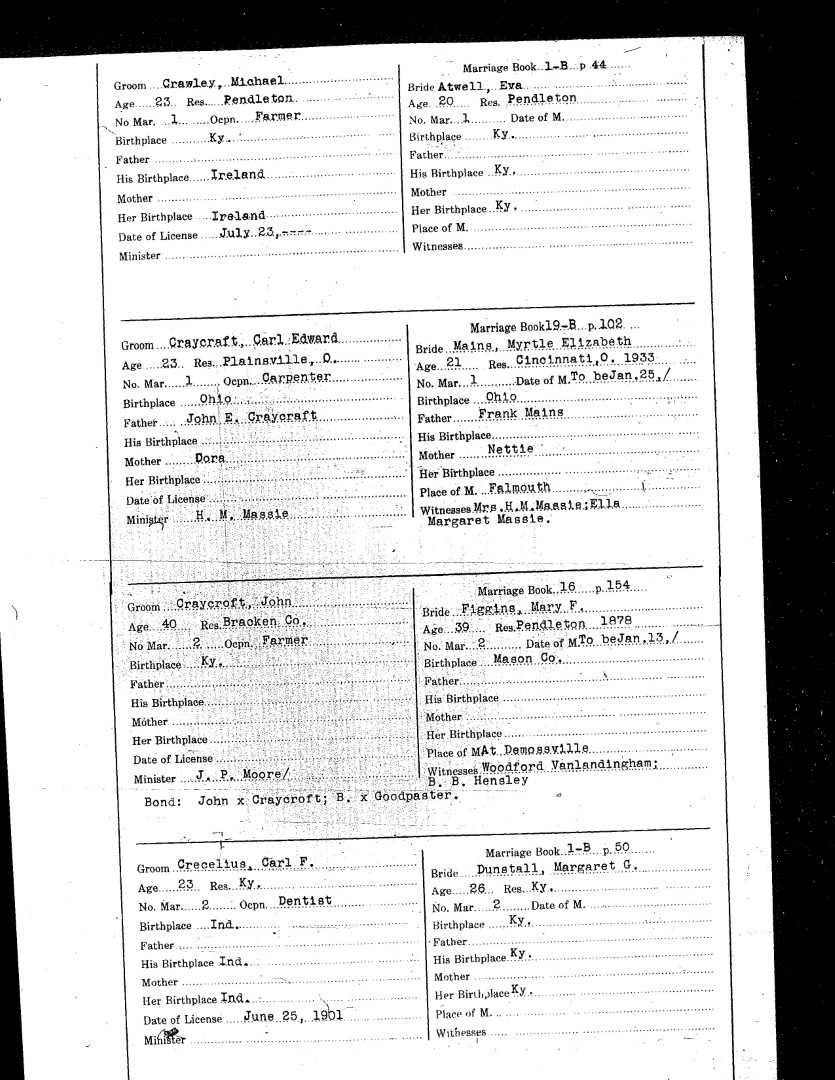 Marriage Book 1-B p 44
Groom Crawley, Michael
Age 23 Res. Pendleton
No Mar. 1 Ocpn. Farmer
Birthplace Ky.
Father
His Birthplace Ireland
Mother
Her Birthplace Ireland
Date of License July 23,----
Minister
Bride Atwell, Eva
Age 20 Res. Pendleton
No. Mar. 1 Date of M.
Birthplace Ky.
Father
His Birthplace Ky.
Mother
Her Birthplace Ky.
Place of M.
Witnesses
Marriage Book 19-B p. 102
Groom Craycraft, Carl Edward
Age 23 Res. Plainsville, O.
No. Mar. 1 Ocpn. Carpenter
Birthplace Ohio
Father John E. Craycraft
His Birthplace
Mother Dora
Her Birthplace
Date of License
Minister H. M. Massie
Bride Mains, Myrtle Elizabeth
Age 21 Res. Cincinnati, O. 1933
No. Mar. 1 Date of M. To be Jan. 25,/
Birthplace Ohio
Father Frank Mains
His Birthplace
Mother Nettie
Her Birthplace
Place of M. Falmouth
Witnesses Mrs. H.M. Massie; Ella
Margaret Massie.
Marriage Book 16 p. 154
Groom Craycroft, John
Age 40 Res. Bracken Co.
No Mar. 2 Ocpn. Farmer
Birthplace Ky.
Father
His Birthplace
Mother
Her Birthplace
Date of License
Minister J. P. Moore/
Bride Figgins, Mary F.
Age 39 Res. Pendleton 1878
No. Mar. 2 Date of M. To be Jan. 13,/
Birthplace Mason Co.
Father
His Birthplace
Mother
Her Birthplace
Place of M. At Demossville
Witnesses Woodford Vanlandingham;
B. B. Hensley
Bond: John x Craycroft; B. x Goodpaster.
Marriage Book 1-B p. 50
Groom Crecelius, Carl F.
Age 23 Res. Ky.
No. Mar. 2 Ocpn. Dentist
Birthplace Ind.
Father
His Birthplace Ind.
Mother
Her Birthplace Ind.
Date of License June 25, 1901
Minister
Bride Dunstall, Margaret G.
Age 26 Res. Ky.
No. Mar. 2 Date of M.
Birthplace Ky.
Father
His Birthplace Ky.
Mother
Her Birthplace Ky.
Place of M.
Witnesses